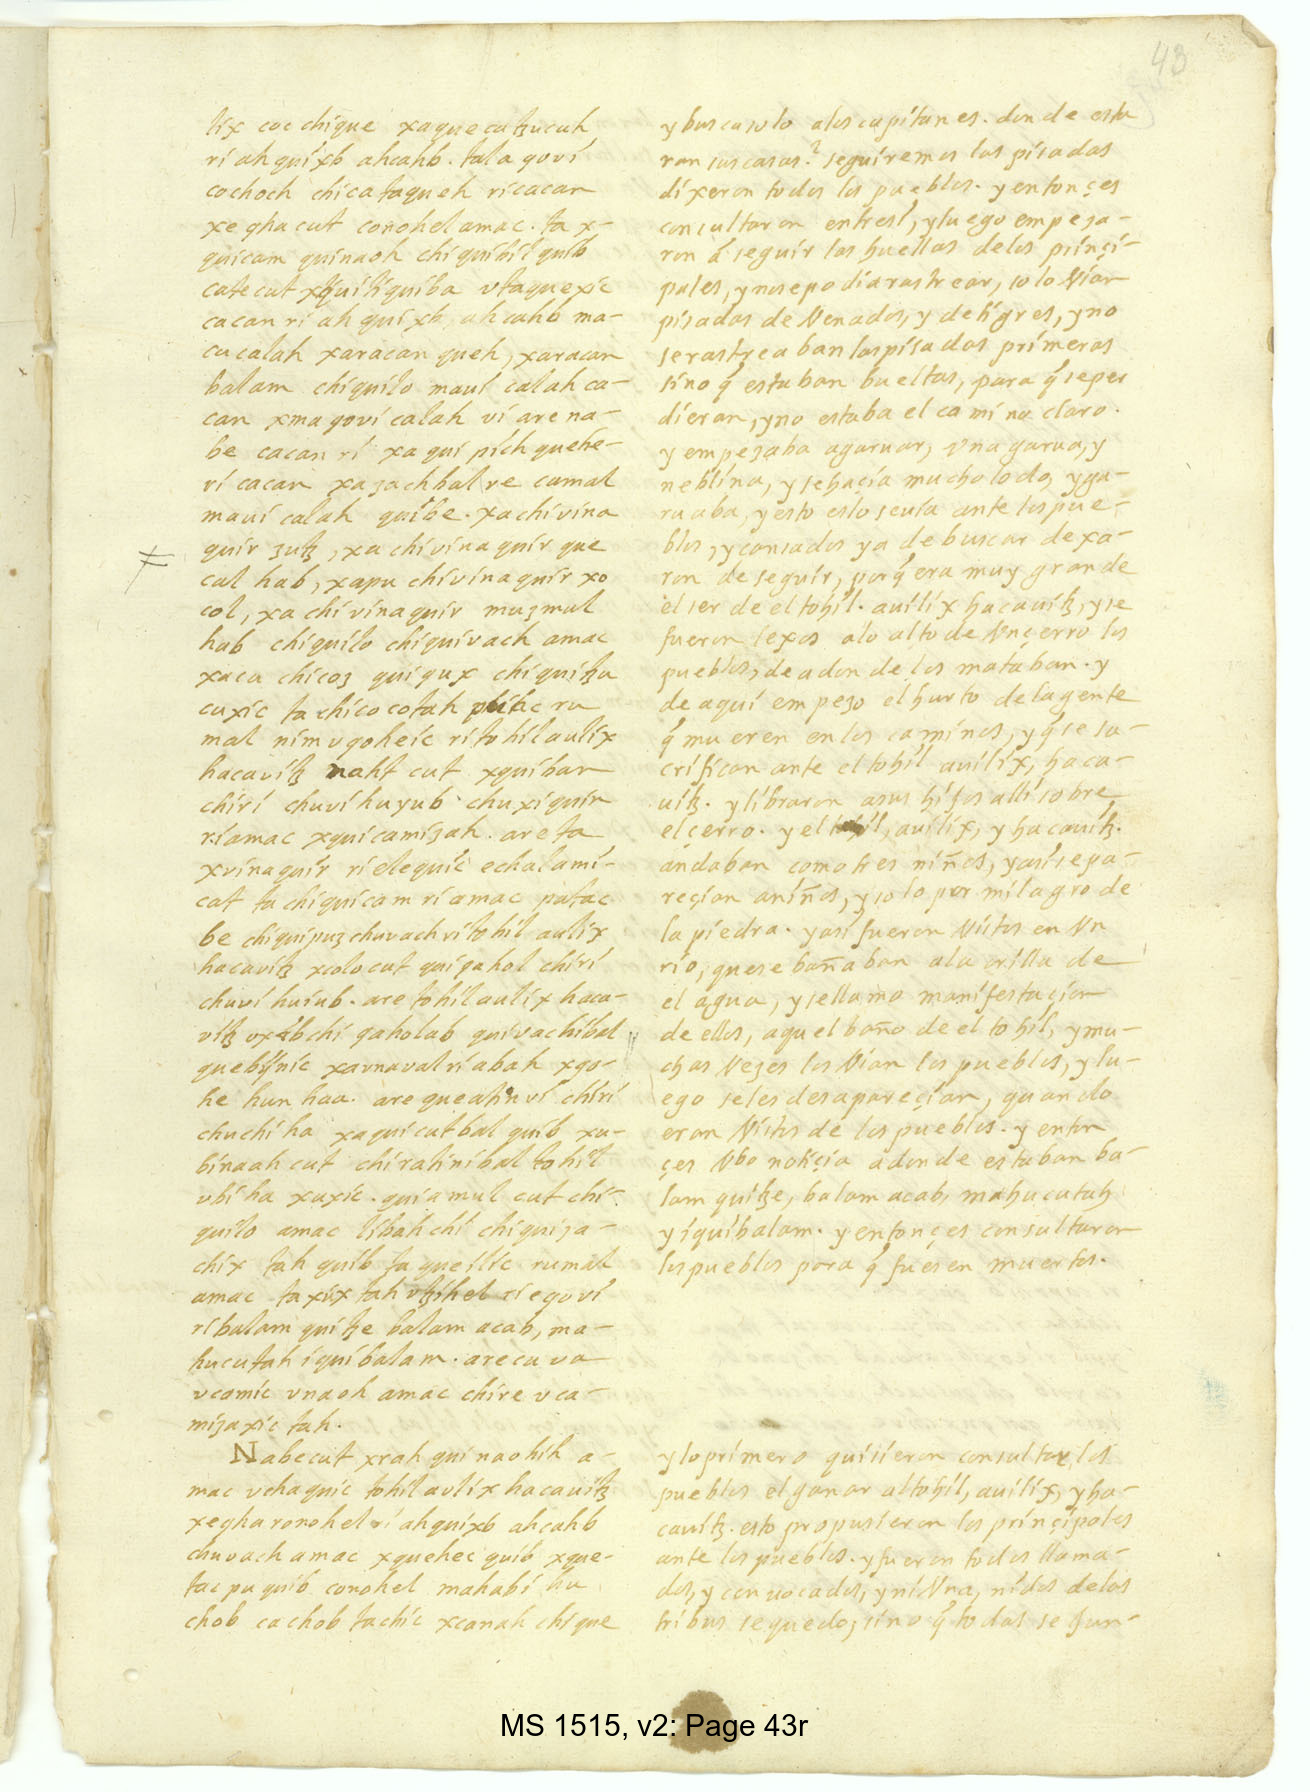 43
tix coc chique xaquecatzucuh
ri ah quixb ahcahb. tala qovi
cochoch chicataqueh ricacan
xe qha cut conohel amac. ta x-
quicam quinaoh chiquibil quib
catecut xquitiquiba vtaquexic
cacan ri ah quixb, ahcahb ma-
cucalah xaracan queh, xaracan
balam chiquilo maui calah ca-
can xmaqovi calah vi are na-
be cacan ri xa qui pich quehe-
ri cacan xa sachbal re cumal
maui calah quibe. xachivina
quir sutz, xa chivinaquir que
cal hab, xapu chivinaquir xo
col, xa chivinaquir musmul
hab chiquilo chiquivach amac
xaca chicoz quiqux chiquitza
cuxic ta chicocotah ru
mal nim vqoheic ri tohil aulix
hacavitz naht cut xquiban
chiri chuvi huyub. chuxiquin
riamac xquicamisah. are ta
xvinaquir rielequic echalami-
cat ta chiquicam riamac patac
be chiquipuz chuvach ri tohil aulix
hacavitz xcolocut quiqahol chiri
chuvi huiub. are tohil aulix haca-
vitz oxib chi qaholab quivachibal
quebijnic xavnaval ri abah xqo-
he hun haa. are queatin vi chiri
chuchi ha xaquicutbal quib xu-
binaah cut chiratinibal tohil
vbi ha xuxic. quiamul cut chi-
quilo amac libahchi chiquisa-
chix tah quib ta queilic rumal
amac taxuxtah vtzihel ri eqovi
ri balam quitze balam acab, ma-
hucutah iquibalam. arecu va
vcomic vnaoh amac chire vca-
misaxic tah.
Nabecut xrah quinaohih a-
mac vchaquic tohil aulix hacauitz
xeqha ronohel ri ahquixb ahcahb
chuvach amac xquehec quib xque-
tac pu quib conohel mahabi hu
chob cachob tachic xcanah chique
y buscarolo alos capitanes. don de estu
ran sus casas? seguiremos las pisadas
dixeron todos los pueblos. y entonçes
consultaron entresi, yluego empesa-
ron á seguir las huellas delos prinçi-
pales, y nosepodiarastrear, solo Vian
pisadas de Venados, y de tigres, y no
serastreaban las pisadas primeras
sino q̃ estaban bueltas, para q̃ seper
dieran, yno estaba el camino claro.
y empesaba agaruar, vna garua, y
neblina, y sehaçia mucho lodo, y ga-
ruaba, y esto eslo seuia ante los pue-
blos, y cansados ya de buscar dexa-
ron de seguir, porq̃ era muy grande
el ser de el tohil. auilix hacauitz, y se
fueron lexos alo alto de Vnçerro los
pueblos, de adonde los mataban. y
de aqui empezo el hurto de la gente
q̃ mueren en los caminos, y q̃ se sa-
crifican ante el tohil auilix, haca-
uitz. y libraron asus hijos alli sobre
el çerro. y el tohil, auilix, y hacauitz.
andaban como tres niños, y asi se pa-
reçian aniños, y solo por milagro de
la piedra. yasi fueron Vistos en Vn
rio, que se bañaban ala orilla de
el agua, y sellamo manifestaçion
de ellos, aquel baño de el tohil, y mu-
chas Vezes los Vian los pueblos, y lu-
ego se les desapareçian, quando
eran Vistos de los pueblos. y enton
çes Vbo notiçia adonde estaban ba-
lam quitze, balam acab, mahucutah
y iquibalam. y entonçes consultaron
los pueblos para q̃ fuesen muertos.
y lo primero quisieron consultar los
pueblos el ganar al tohil, auilix, y ha-
cauitz. esto propusieron los prinçipales
ante los pueblos. y fueron todos llama-
dos, y conuocados, y ni Vna, ni dos de las
tribus se quedo, sino q̃ todas se jun-
MS 1515, v2: Page 43r